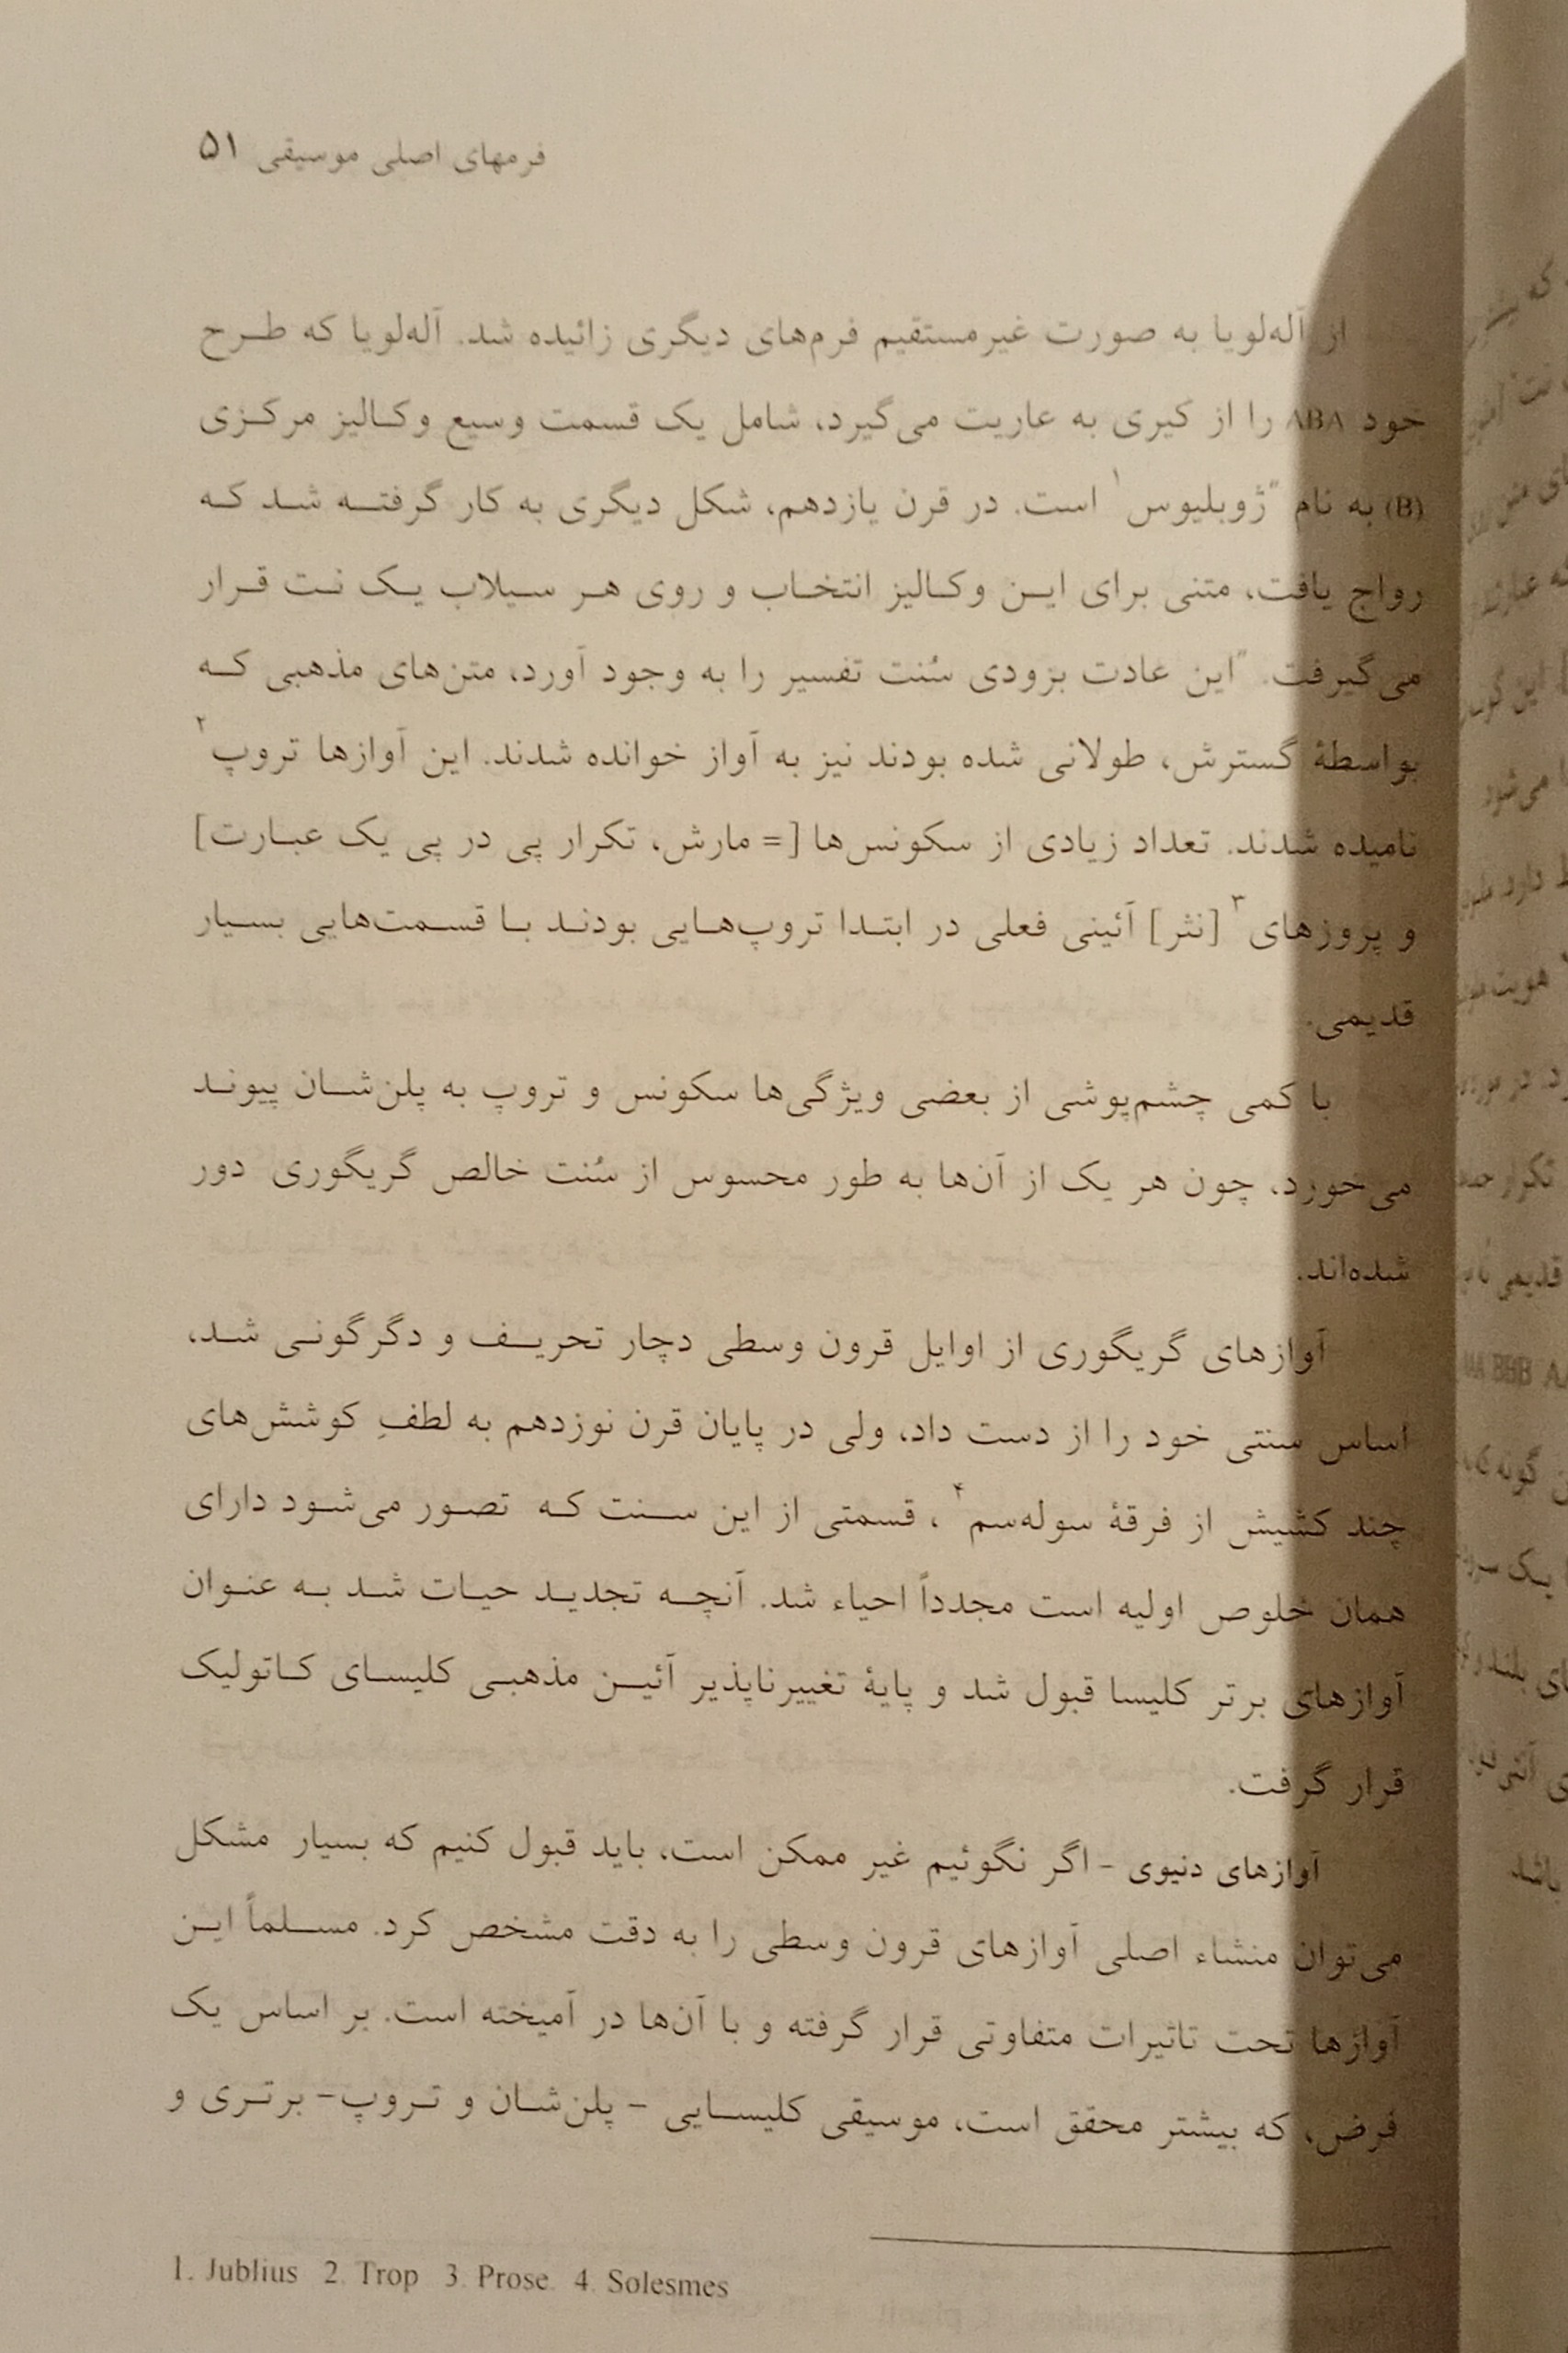 فرمهای اصلی موسیقی ۵۱
از آله‌لویا به صورت غیرمستقیم فرم‌های دیگری زائیده شد. آله‌لویا که طرح
خود ABA را از کیری به عاریت می‌گیرد، شامل یک قسمت وسیع وکالیز مرکزی
(B) به نام "ژوبلیوس۱ است. در قرن یازدهم، شکل دیگری به کار گرفته شد که
رواج یافت، متنی برای این وکالیز انتخاب و روی هر سیلاب یک نت قرار
می‌گیرفت. "این عادت بزودی سُنت تفسیر را به وجود آورد، متن‌های مذهبی که
بواسطهٔ گسترش، طولانی شده بودند نیز به آواز خوانده شدند. این آوازها تروپ۲
نامیده شدند. تعداد زیادی از سکونس‌ها [= مارش، تکرار پی در پی یک عبارت]
و پروزهای۳ [نثر] آئینی فعلی در ابتدا تروپ‌هایی بودند با قسمت‌هایی بسیار
قدیمی.
با کمی چشم‌پوشی از بعضی ویژگی‌ها سکونس و تروپ به پلن‌شان پیوند
می‌خورد، چون هر یک از آن‌ها به طور محسوس از سُنت خالص گریگوری دور
شده‌اند.
آوازهای گریگوری از اوایل قرون وسطی دچار تحریف و دگرگونی شد،
اساس سنتی خود را از دست داد، ولی در پایان قرن نوزدهم به لطفِ کوشش‌های
چند کشیش از فرقهٔ سوله‌سم۴، قسمتی از این سنت که تصور می‌شود دارای
همان خلوص اولیه است مجدداً احیاء شد. آنچه تجدید حیات شد به عنوان
آوازهای برتر کلیسا قبول شد و پایهٔ تغییرناپذیر آئین مذهبی کلیسای کاتولیک
قرار گرفت.
آوازهای دنیوی - اگر نگوئیم غیر ممکن است، باید قبول کنیم که بسیار مشکل
می‌توان منشاء اصلی آوازهای قرون وسطی را به دقت مشخص کرد. مسلماً این
آوازها تحت تاثیرات متفاوتی قرار گرفته و با آن‌ها در آمیخته است. بر اساس یک
فرض، که بیشتر محقق است، موسیقی کلیسایی - پلن‌شان و تروپ- برتری و
1. Jublius 2. Trop 3. Prose. 4. Solesmes